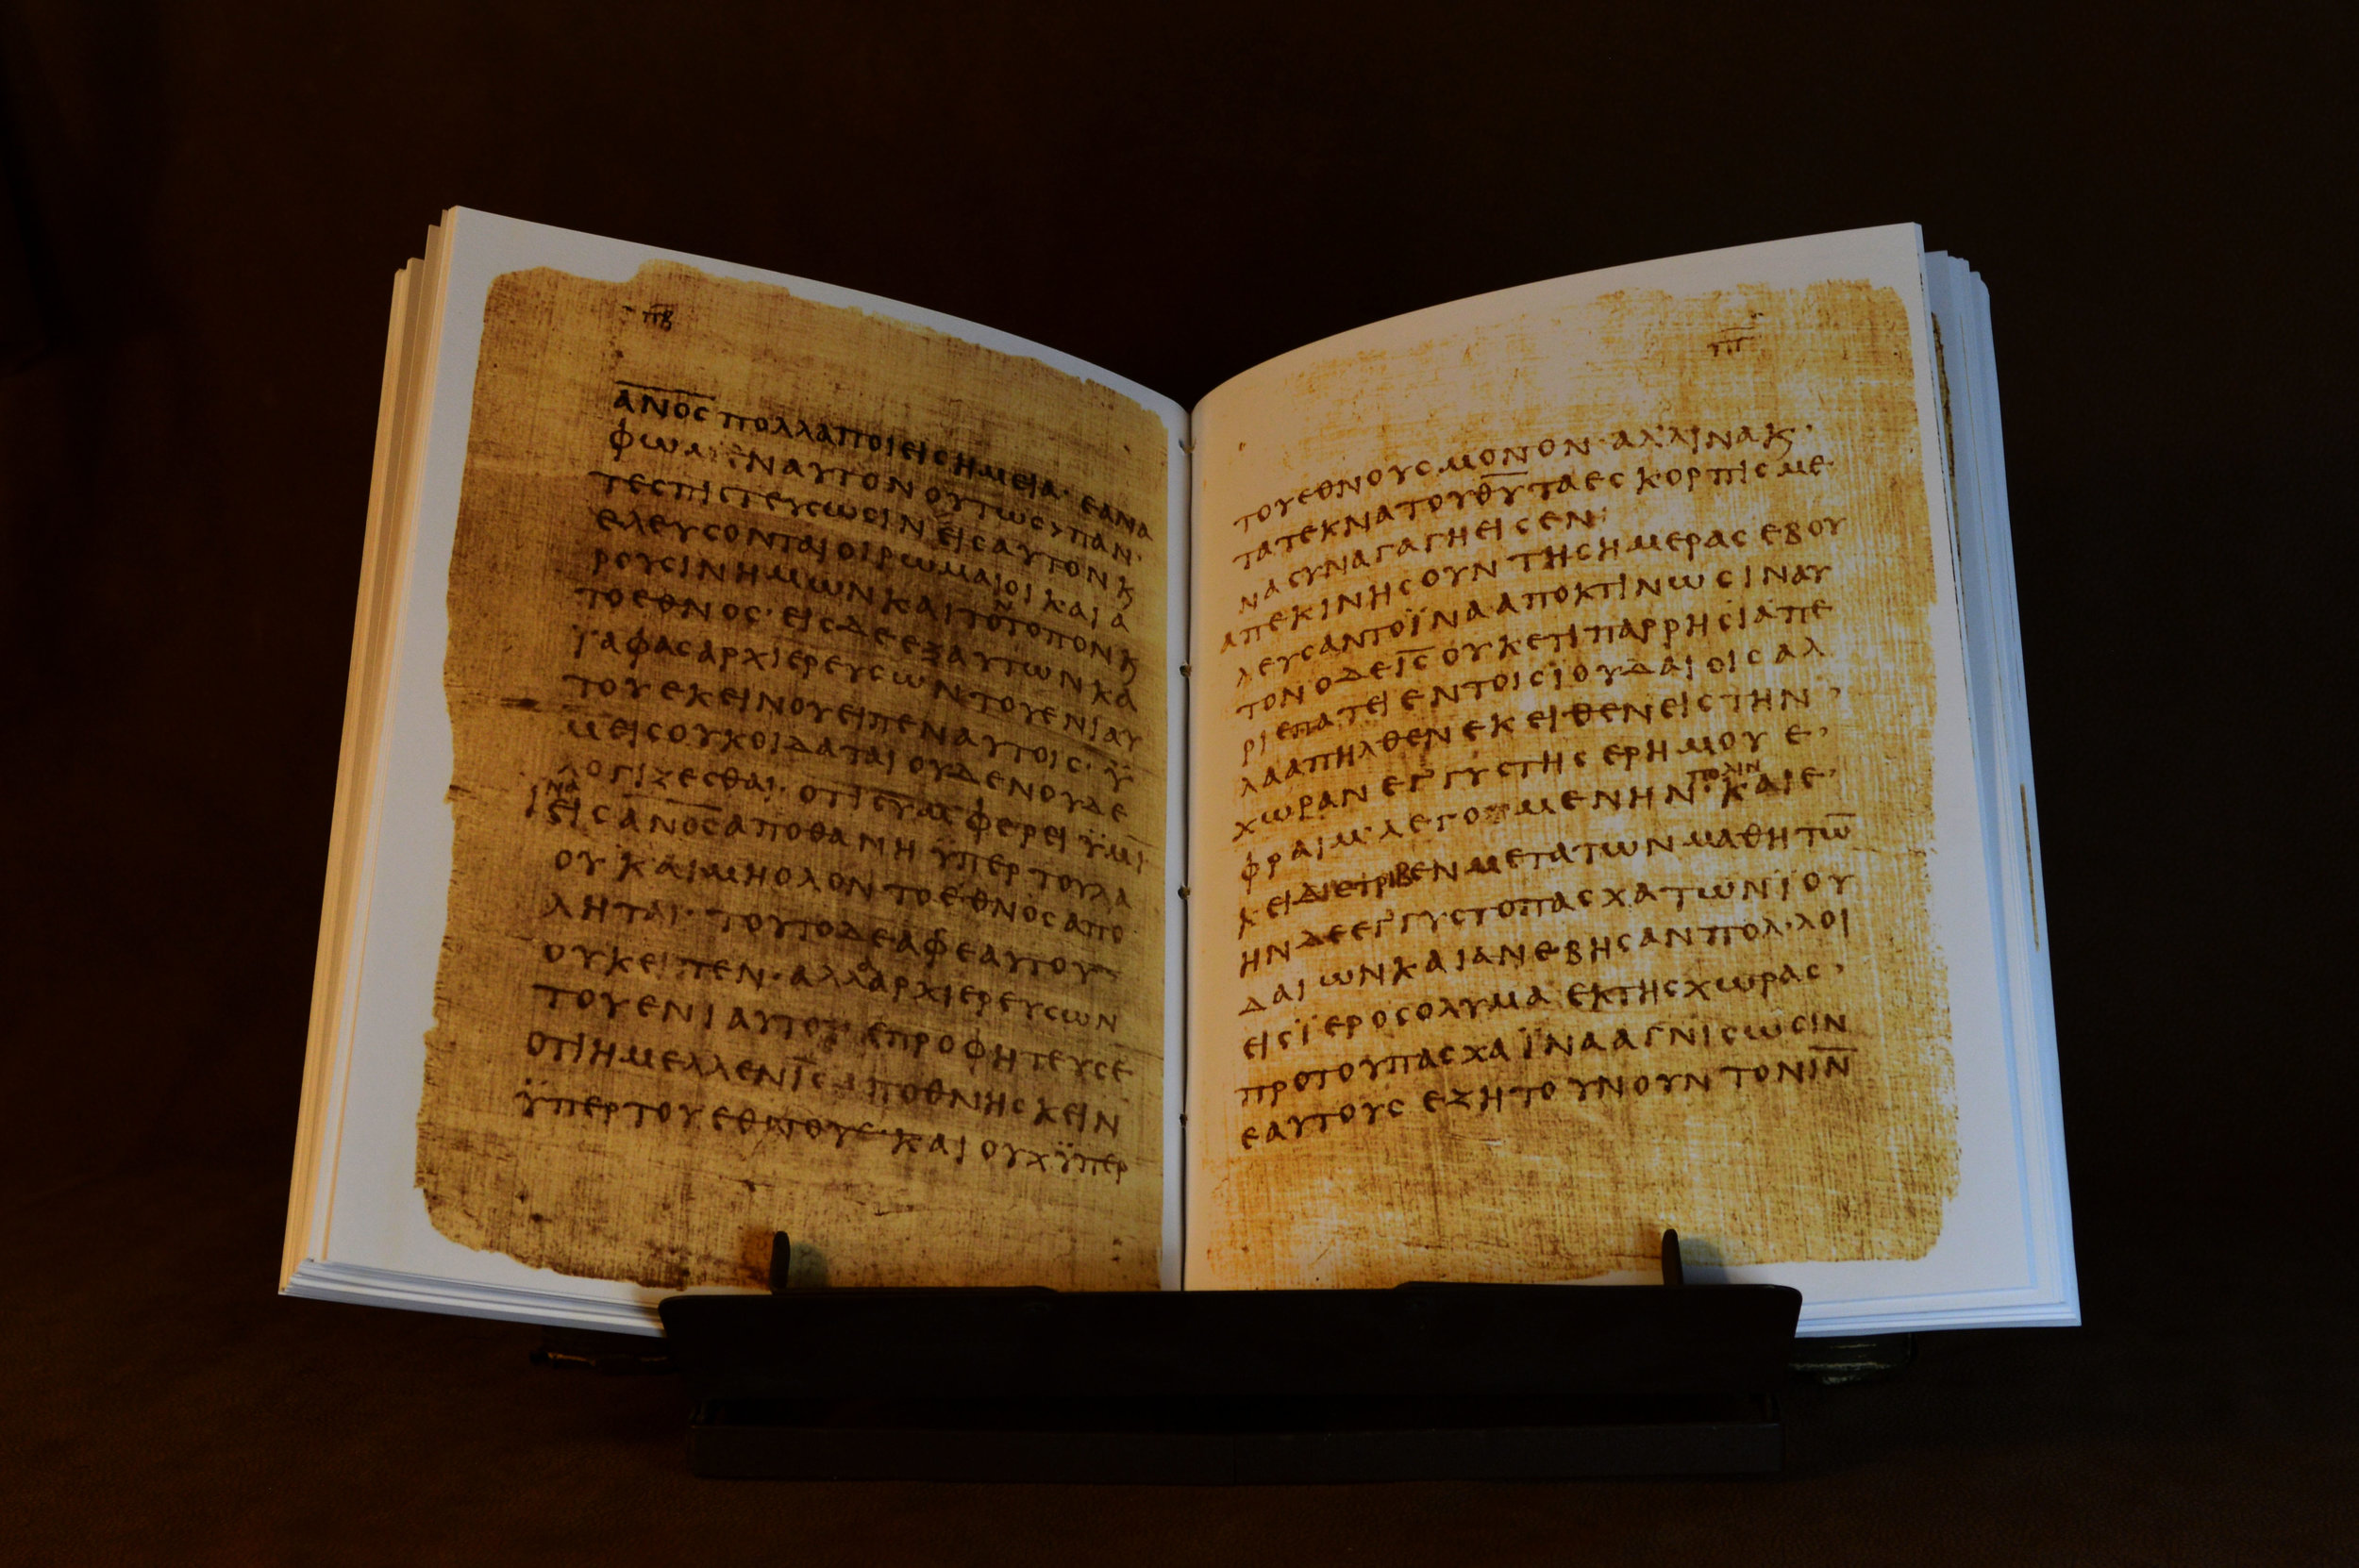 Π̅Β̅
Α̅Ν̅Ο̅Ϲ̅ΠΟΛΛΑΠΟΙΕΙϹΗΜΕΙΑ·ΕΑΝΑ
ΑΥΤΟΝΟΥΤΩϹΥΠΑΝ·
ΤΕϹΠΙϹΤΕΥϹΩϹΙΝΕΙϹΑΥΤΟΝΚ
ΕΛΕΥϹΟΝΤΑΙΟΙΡΩΜΑΙΟΙΚΑΙΑ
ΡΟΥϹΙΝΗΜΩΝΚΑΙΤΟΝΤΟΠΟΝΚ
ΤΟΕΘΝΟϹ·ΕΙϹΔΕΕΞΑΥΤΩΝΚΑ
ΪΑΦΑϹΑΡΧΙΕΡΕΥϹΩΝΤΟΥΕΝΙΑΥ
ΤΟΥΕΚΕΙΝΟΥΕΙΠΕΝΑΥΤΟΙϹ·Ϋ
ΜΕΙϹΟΥΚΟΙΔΑΤΑΙΟΥΔΕΝΟΥΔΕ
ΛΟΓΙΖΕϹΘΑΙ·ΟΤΙϹΥΜΦΕΡΕΙΫΜΙ̅
ΙΝΑ
ΕΙϹΑ̅Ν̅Ο̅Ϲ̅ΑΠΟΘΑΝΗΫΠΕΡΤΟΥΛΑ
ΟΥΚΑΙΜΗΟΛΟΝΤΟΕΘΝΟϹΑΠΟ
ΛΗΤΑΙ·ΤΟΥΤΟΔΕΑΦΕΑΥΤΟΥ
ΟΥΚΕΙΠΕΝ·ΑΛΛΑΑΡΧΙΕΡΕΥϹΩΝ
ΤΟΥΕΝΙΑΥΤΟΥ·ΕΠΡΟΦΗΤΕΥϹΕ
ΟΤΙΗΜΕΛΛΕΝΙ̅Ϲ̅ΑΠΟΘΝΗϹΚΕΙΝ
ΫΠΕΡΤΟΥΕΘΝΟΥϹ·ΚΑΙΟΥΧΫΠΕΡ
Π̅Γ̅
ΤΟΥΕΘΝΟΥϹΜΟΝΟΝ·ΑΛΛΙΝΑΚ·
ΤΑΤΕΚΝΑΤΟΥΘ̅Υ̅ΤΑΕϹΚΟΡΠΙϹΜΕ·
ΝΑϹΥΝΑΓΑΓΗΕΙϹΕΝ:
ΑΠΕΚΙΝΗϹΟΥΝΤΗϹΗΜΕΡΑϹΕΒΟΥ
ΛΕΥϹΑΝΤΟΪΝΑΑΠΟΚΤΙΝΩϹΙΝΑΥ
ΤΟΝΟΔΕΙ̅Ϲ̅ΟΥΚΕΤΙΠΑΡΡΗϹΙΑΠΕ
ΡΙΕΠΑΤΕΙΕΝΤΟΙϹΙΟΥΔΑΙΟΙϹΑΛ
ΛΑΑΠΗΛΘΕΝΕΚΕΙΘΕΝΕΙϹΤΗΝ
ΧΩΡΑΝΕΓΓΥϹΤΗϹΕΡΗΜΟΥΕ
ΠΟΛΙΝ
ΦΡΑΙΜ·ΛΕΓΟΜΕΝΗΝ·ΚΑΙΕ
ΚΕΙΔΙΕΤΡΙΒΕΝΜΕΤΑΤΩΝΜΑΘΗΤΩ̅
ΗΝΔΕΕΓΓΥϹΤΟΠΑϹΧΑΤΩΝΙΟΥ
ΔΑΙΩΝΚΑΙΑΝΕΒΗϹΑΝΠΟΛΛΟΙ
ΕΙϹΪΕΡΟϹΟΛΥΜΑΕΚΤΗϹΧΩΡΑϹ
ΠΡΟΤΟΥΠΑϹΧΑΪΝΑΑΓΝΙϹΩϹΙΝ
ΕΑΥΤΟΥϹΕΖΗΤΟΥΝΟΥΝΤΟΝΙ̅Ν̅